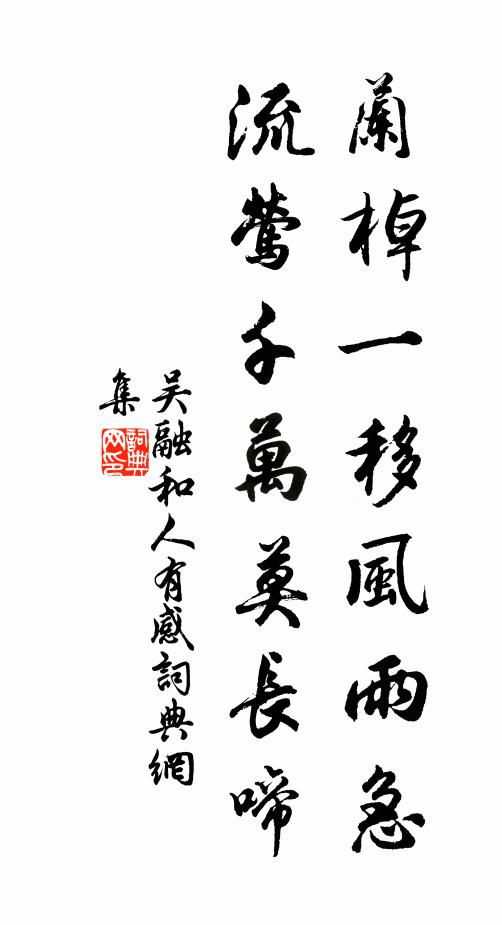 蘭棹一移風雨急
流鶯千萬莫長啼
吳融和人有感詞典網
集
詞典
网印